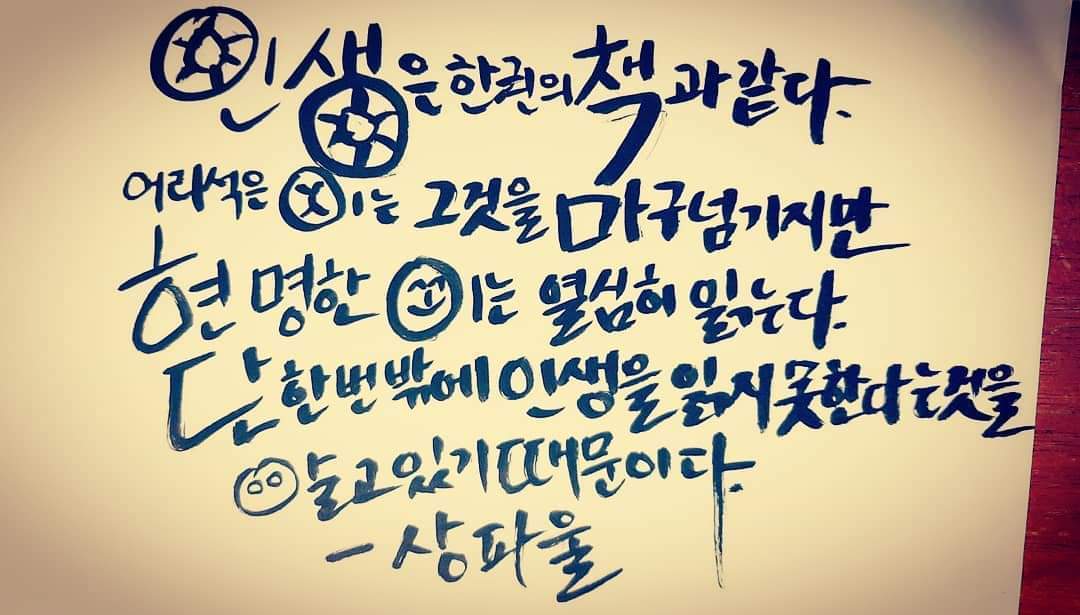 인생은 한권의 책과 같다.
어리석은 이는 그것을 마구 넘기지만
현명한 이는 열심히 읽는다.
단 한번밖에 인생을 읽지 못한다는것을
알고있기 때문이다.
- 상파울